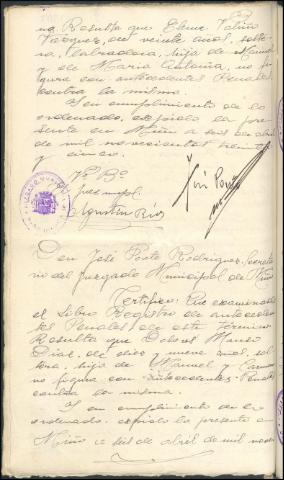 na Resulta que Elena
Vazquez, de veinte años, solte-
ra, labradora, hija de Manuel
y de Maria Antonia, no fi-
gura con antecedentes Penales
contra la misma.
Y en cumplimiento de lo
ordenado, expido la pre-
sente en Miño a seis de abril
de mil novecientos treinta
y cinco.
Vº Bº
Juez mpal.
Agustin Rios
José
Don José Porto Rodriguez, Secreta-
rio del Juzgado Municipal de Miño
Certifico: Que examinado
el Libro Registro de antecedentes
Penales de este término
Resulta que Dolores
Diaz, de diez y nueve años, sol-
tera, hija de Manuel y Carmen
no figura con antecedentes Penales
contra la misma.
Y en cumplimiento de lo
ordenado, expido la presente en
Miño a seis de abril de mil nove-